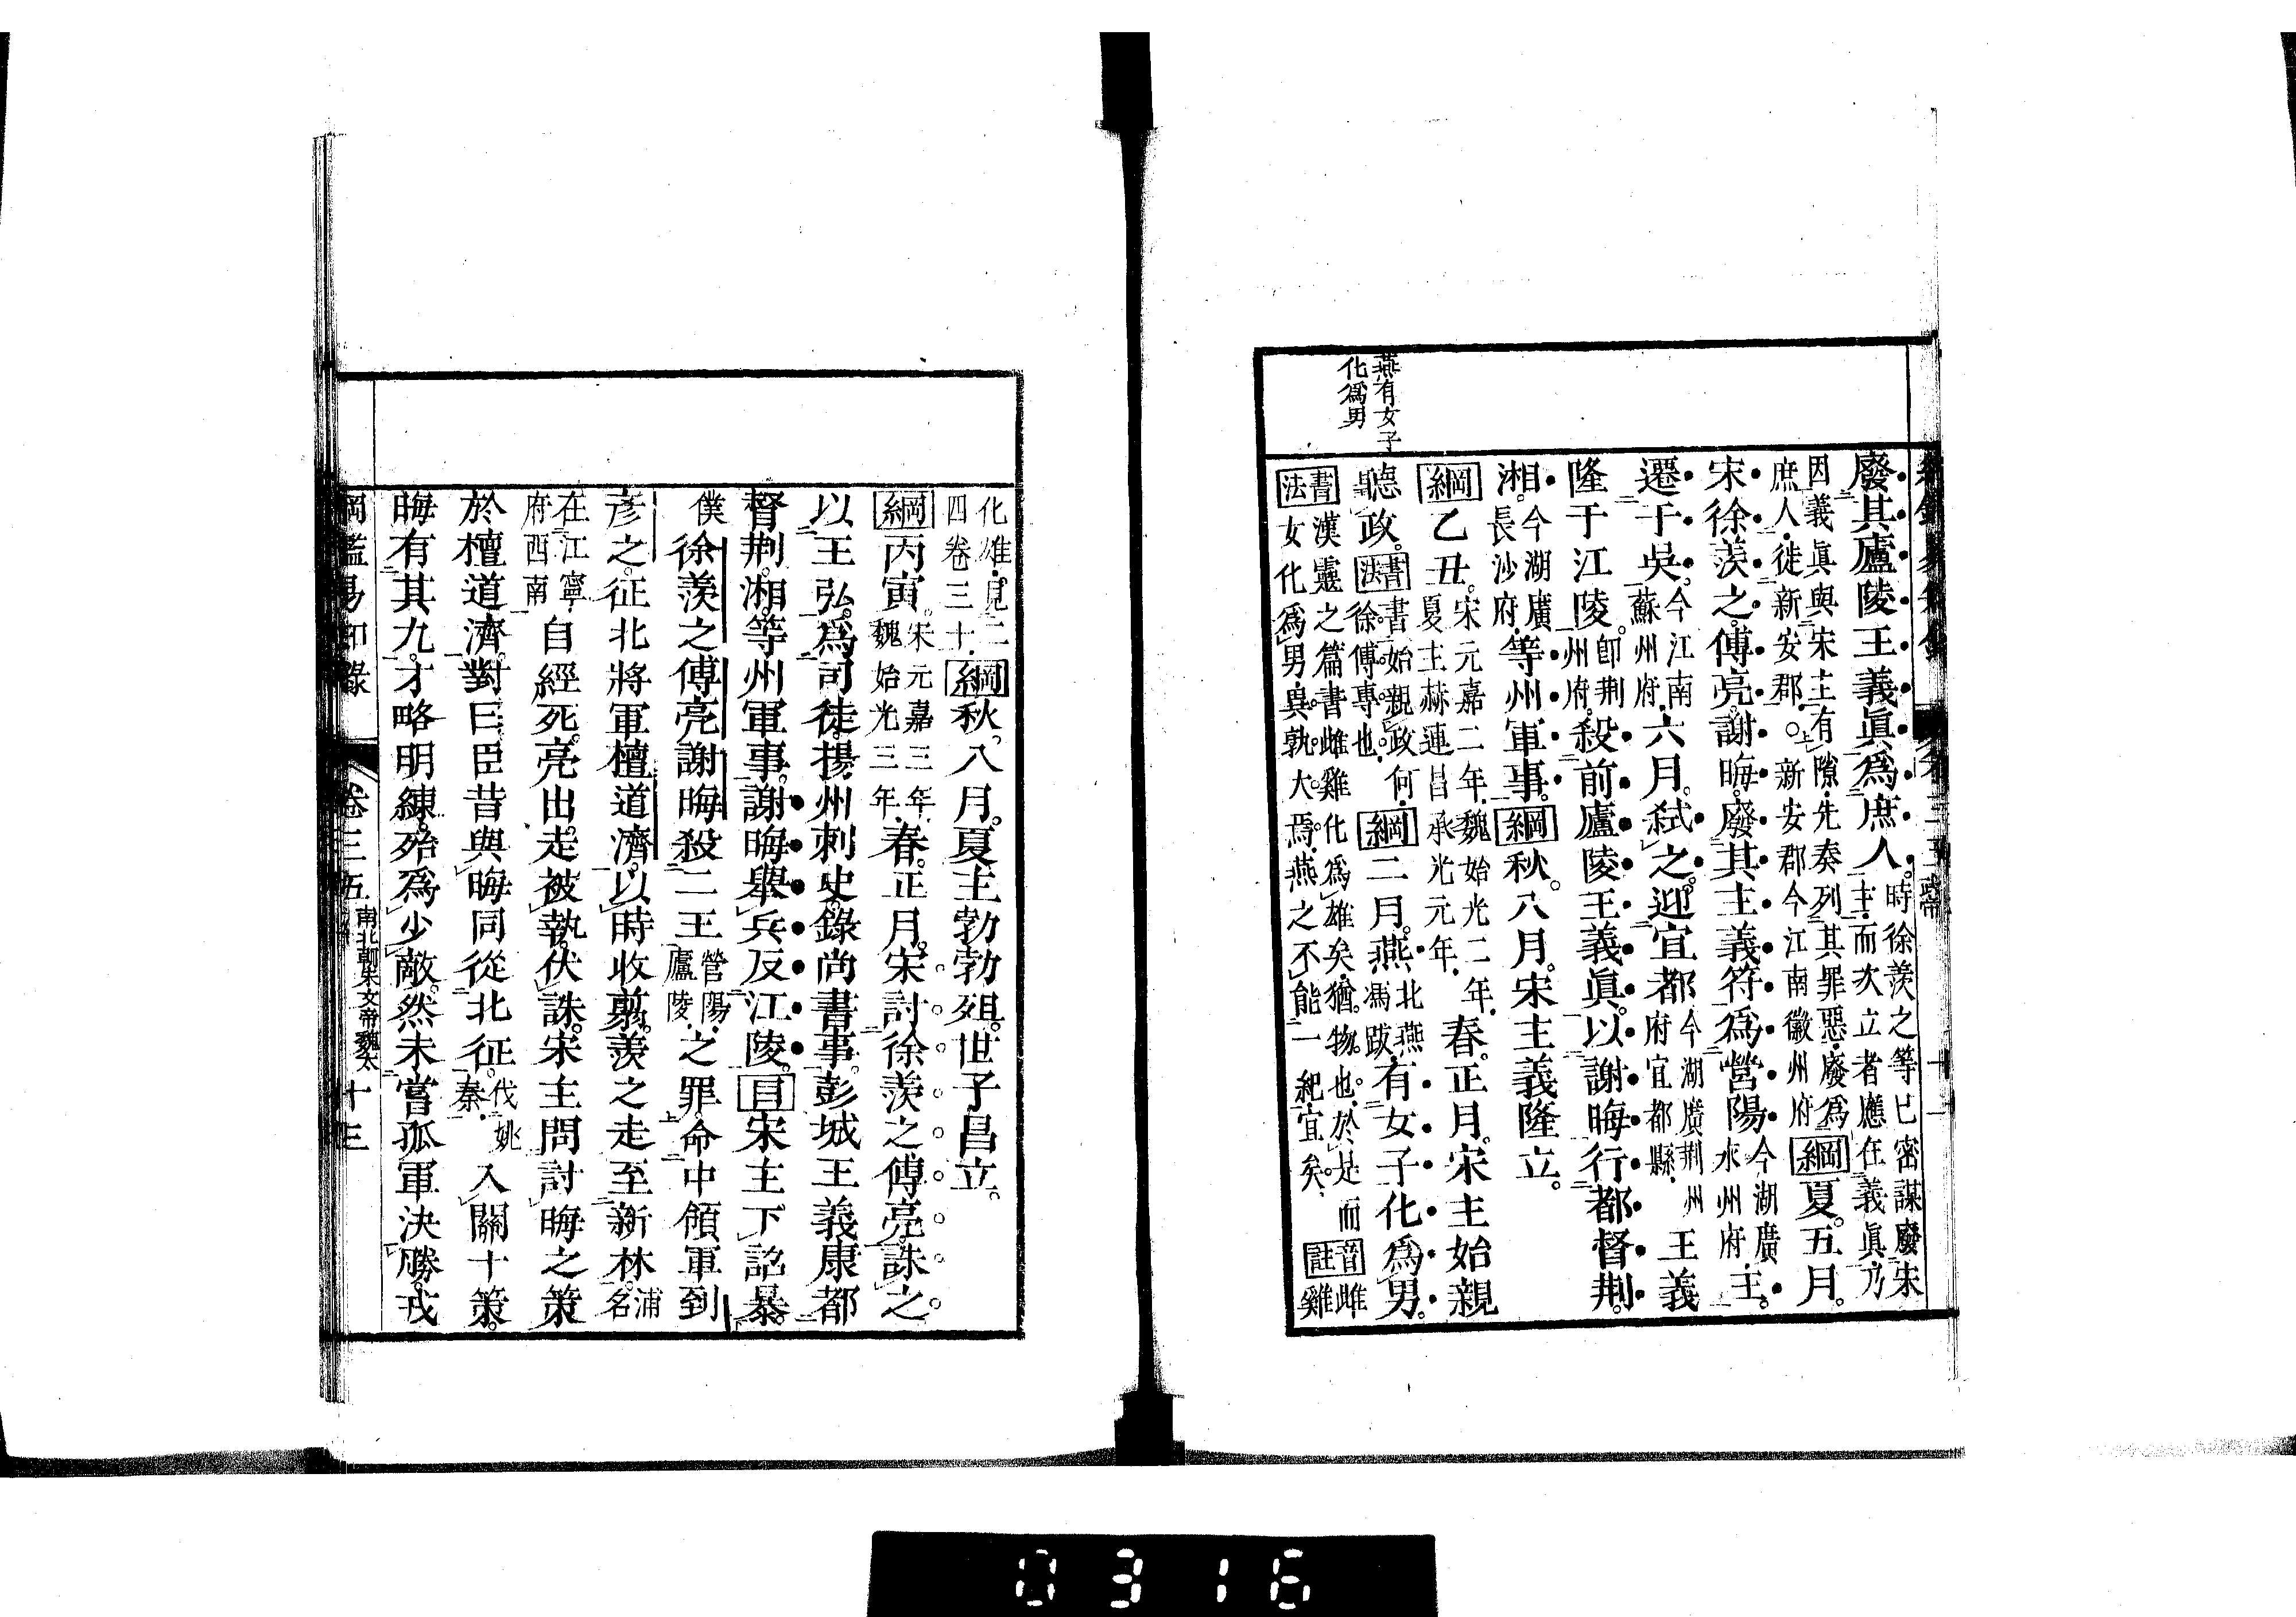 燕有女子
化爲男
廢其廬陵王義眞爲庶人。時徐羨之等已密謀廢宋
主而次立者應在義眞乃
因義眞與宋主有隙先奏列其罪惡廢爲
庶人徙新安郡。新安郡今江南徽州府
綱夏五月。
宋徐羨之傅亮謝晦廢其主義符爲營陽
今湖廣
永州府
主。
遷于吳。
今江南
蘇州府
六月弑之迎宜都
今湖廣荆州
府宜都縣
王義
隆于江陵。
卽荆
州府
殺前廬陵王義眞。以謝晦行都督荆。
湘。
今湖廣
長沙府
等州軍事。綱秋。八月。宋主義隆立。
綱乙丑。
宋元嘉二年魏始光二年
夏主赫連昌承光元年
春。正月。宋主始親
聽政。
書法
書始親政何
徐傅專也
綱二月。燕
北燕
馮跋
有女子化爲男。
書法
漢靈之篇書雌雞化爲雄矣猶物也於是而
女化爲男異孰大焉燕之不能一紀宜矣
音註
雌
雞
化雄見二
四卷三十
綱秋。八月。夏主勃勃殂。世子昌立。
綱丙寅。
宋元嘉三年
魏始光三年
春。正月。宋討徐羨之傅亮。誅之
以王弘爲司徒揚州刺史錄尚書事彭城王義康都
督荆湘等州軍事。謝晦舉兵反江陵。目宋主下詔暴。
僕徐羨之傅亮謝晦殺二王
營陽
廬陵
之罪。命中領軍到
彥之。征北將軍檀道濟。以時收翦。羨之走至新林。
浦
名
在江寧
府西南
自經死。亮出走。被執伏誅。宋主問討晦之策
於檀道濟。對曰臣昔與晦同從北征。
伐姚
秦
入關十策。
晦有其九。才略明練殆爲少敵。然未嘗孤軍決勝。戎
綱鑑易知錄 卷三五 南北朝宋文帝魏太 十三